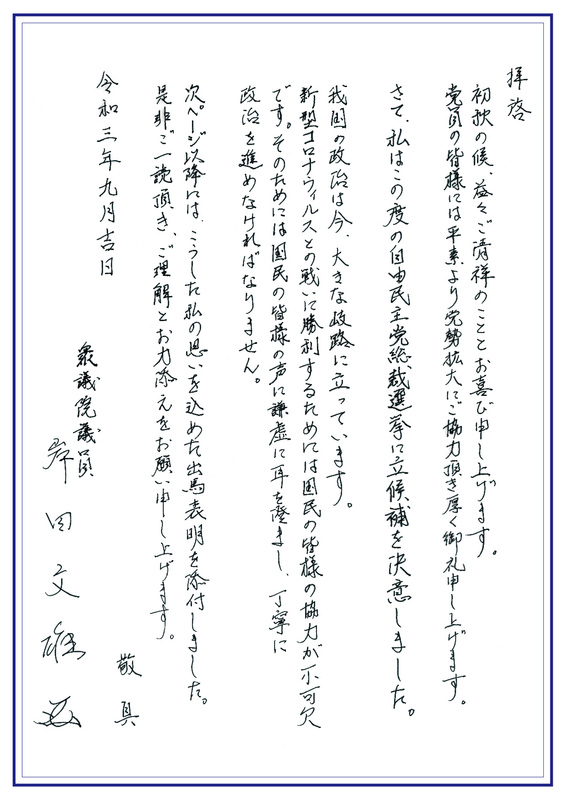 拝啓
初秋の候、益々ご清祥のこととお喜び申し上げます。
党員の皆様には平素より党勢拡大にご協力頂き厚く御礼申し上げます。
さて、私はこの度の自由民主党総裁選挙に立候補を決意しました。
我国の政治は今、大きな岐路に立っています。
新型コロナウィルスとの戦いに勝利するためには国民の皆様の協力が不可欠
です。そのためには国民の皆様の声に謙虚に耳を澄まし、丁寧に
政治を進めなければなりません。
次ページ以降には、こうした私の思いを込めた出馬表明を添付しました。
是非ご一読頂き、ご理解とお力添えをお願い申し上げます。
敬具
令和三年九月吉日
衆議院議員
岸田文雄